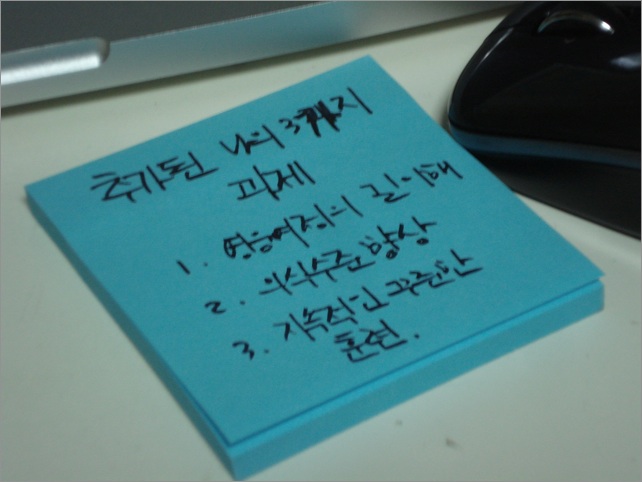 추가된 나의 3가지
과제
1. 영웅여정의 길 이해
2. 의식수준 향상
3. 지속적인 꾸준한
훈련.